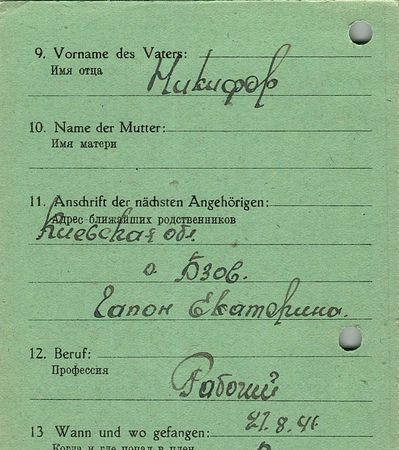 9. Vorname des Vaters:
Имя отца
Никифор
10. Name der Mutter:
Имя матери
11. Anschrift der nächsten Angehörigen:
Адрес ближайших родственников
Киевская обл.
с. Бзов.
Гапон Екатерина.
12. Beruf:
Профессия
Рабочий
21.8.41
13 Wann und wo gefangen:
Когда и где попал в плен